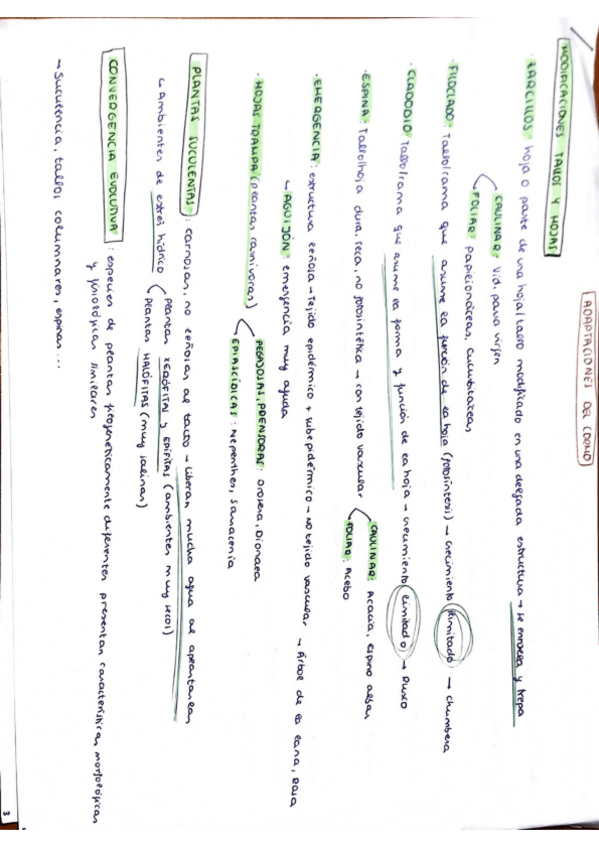 ADAPTACIONES DEL CORMO
MODIFICACIONES TALLOS Y HOJAS
· ZARCILLOS: hoja o parte de una hoja/tallo modificado en una delgada estructura → se enrosca y trepa
CAULINAR: Vid, parra virgen
FOLIAR: Papilionáceas, cucurbitáceas
· FILOCLADO: Tallo/rama que asume la función de la hoja (fotosíntesis) → crecimiento ilimitado → chumbera
· CLADODIO: Tallo/rama que asume la forma y función de la hoja → crecimiento limitado → Rusco
· ESPINA: Tallo/hoja dura, seca, no fotosintética → con tejido vascular
CAULINAR: Acacia, espino albar
FOLIAR: Acebo
· EMERGENCIA: estructura leñosa → tejido epidérmico + subepidérmico → no tejido vascular → Árbol de la lana, Rosa
↳ AGUIJÓN: emergencia muy aguda
· HOJAS TRAMPA (plantas carnívoras)
PEGAJOSAS, PRENSORAS: Drosera, Dionaea
EPIASCÍDICAS: Nepenthes, Sarracenia
PLANTAS SUCULENTAS: carnosas, no leñosas al tacto → liberan mucha agua al apretarlas
↳ Ambientes de estrés hídrico
Plantas XERÓFITAS y EPÍFITAS (ambientes muy secos)
Plantas HALÓFITAS (muy salinas)
CONVERGENCIA EVOLUTIVA: especies de plantas filogenéticamente diferentes presentan características morfológicas
y fisiológicas similares
→ Suculencia, tallos columnares, espinas...
3